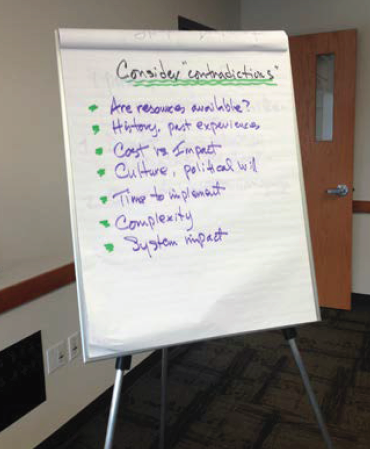 Consider "contradictions"
Are resources available?
History, past experiences
Cost vs Impact
Culture, political will
Time to implement
Complexity
System impact